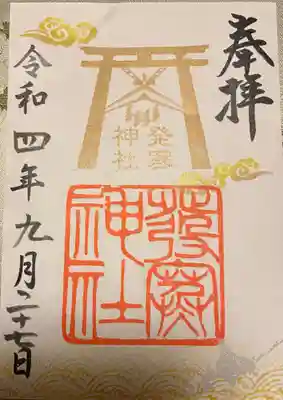 奉拝
発寒
神社
發寒
神社
令和四年九月二十七日